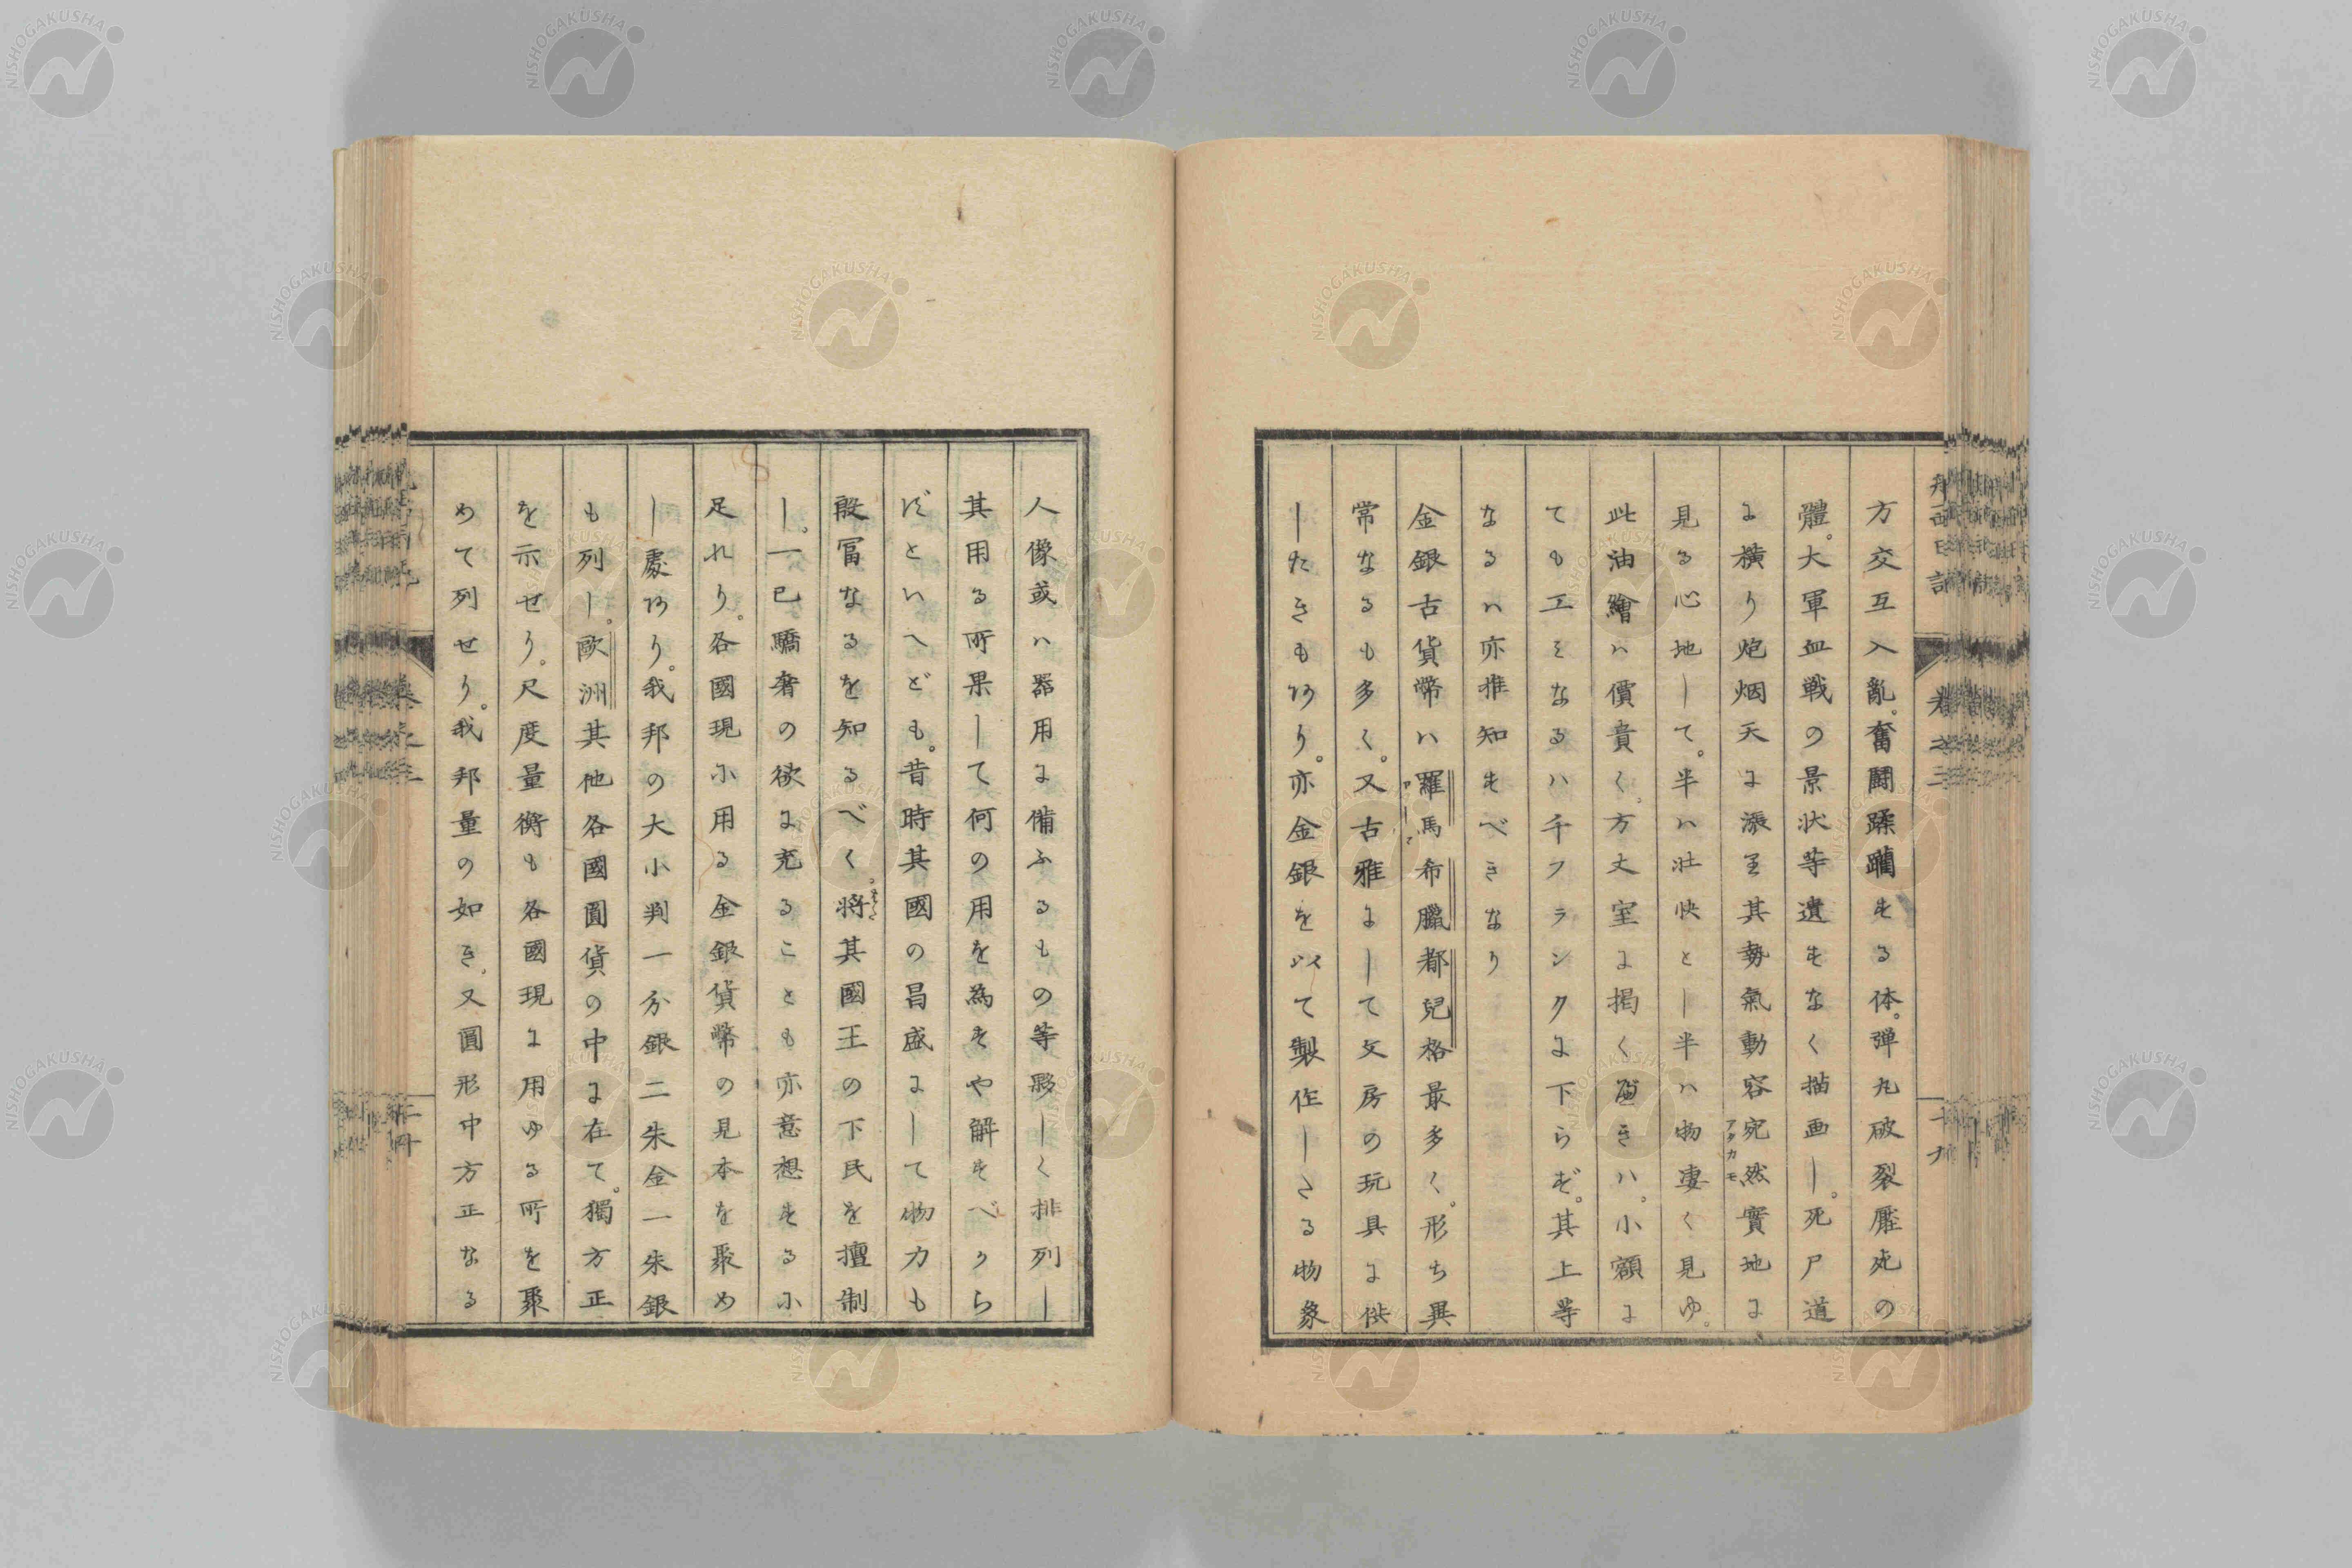 方交互入亂。奮鬪蹂躪する体。彈丸破裂壓死の
體。大軍血戰の景状等遺すなく描画し。死尸道
に橫り炮烟天に漲里其勢氣動容宛然實地に
アタカモ
見る心地して。半ハ壮快とし半ハ物凄く見ゆ。
此油繪ハ價貴く。方丈室に掲くべきハ。小額に
ても工みなるハ千フランクに下らず。其上等
なるハ亦推知すべきなり
金銀古貨幣ハ羅馬希臘都兒格最多く。形ち異
ローマ
常なるも多く。又古雅にして文房の玩具に供
したきもあり。亦金銀を以て製作しさる物象
人像或ハ器用に備ふるもの等夥しく排列し
其用る所果して何の用を為すや解すべから
ずといへども。昔時其國の昌盛にして物力も
殷冨なるを知るべく。将其國王の下民を擅制
し。一己驕奢の欲に充ることも亦意想するに
足れり。各國現に用る金銀貨幣の見本を聚め
し處あり。我邦の大小判一分銀二朱金一朱銀
も列し。歐洲其他各國圓貨の中に在て。獨方正
を示せり。尺度量衡も各國現に用ゆる所を聚
めて列せり。我邦量の如き。又圓形中方正なる
NISHOGAKUSHA